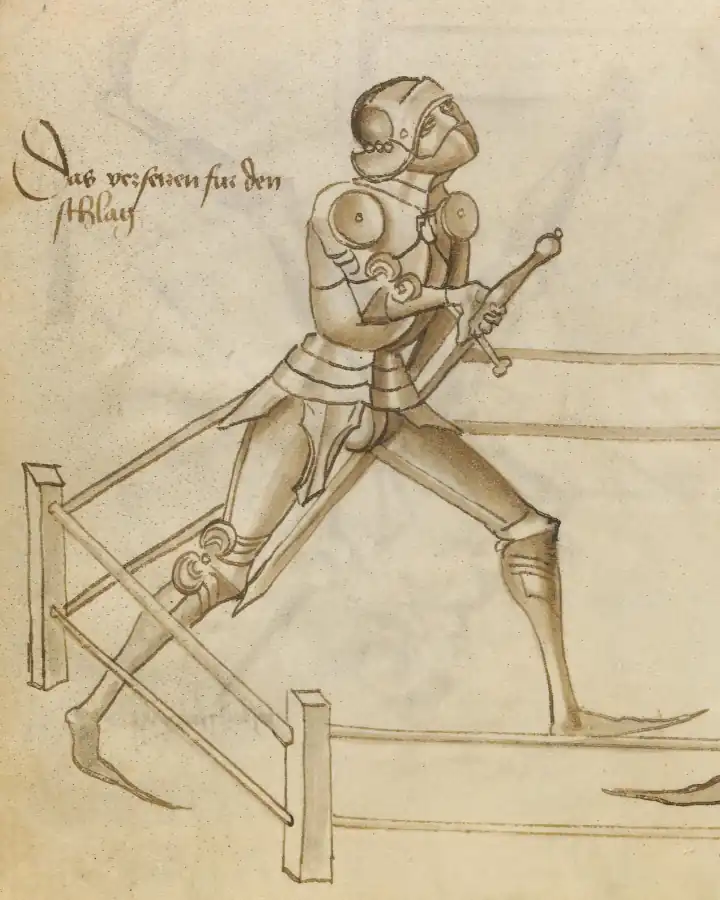 Das verseczen fur den
schlag